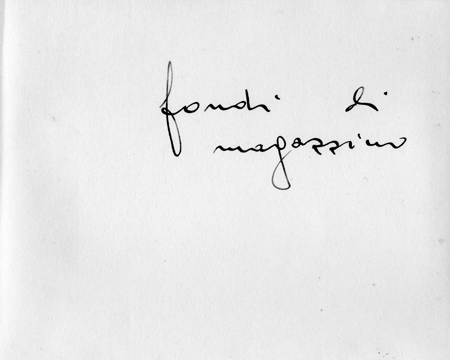 fondi di
magazzino